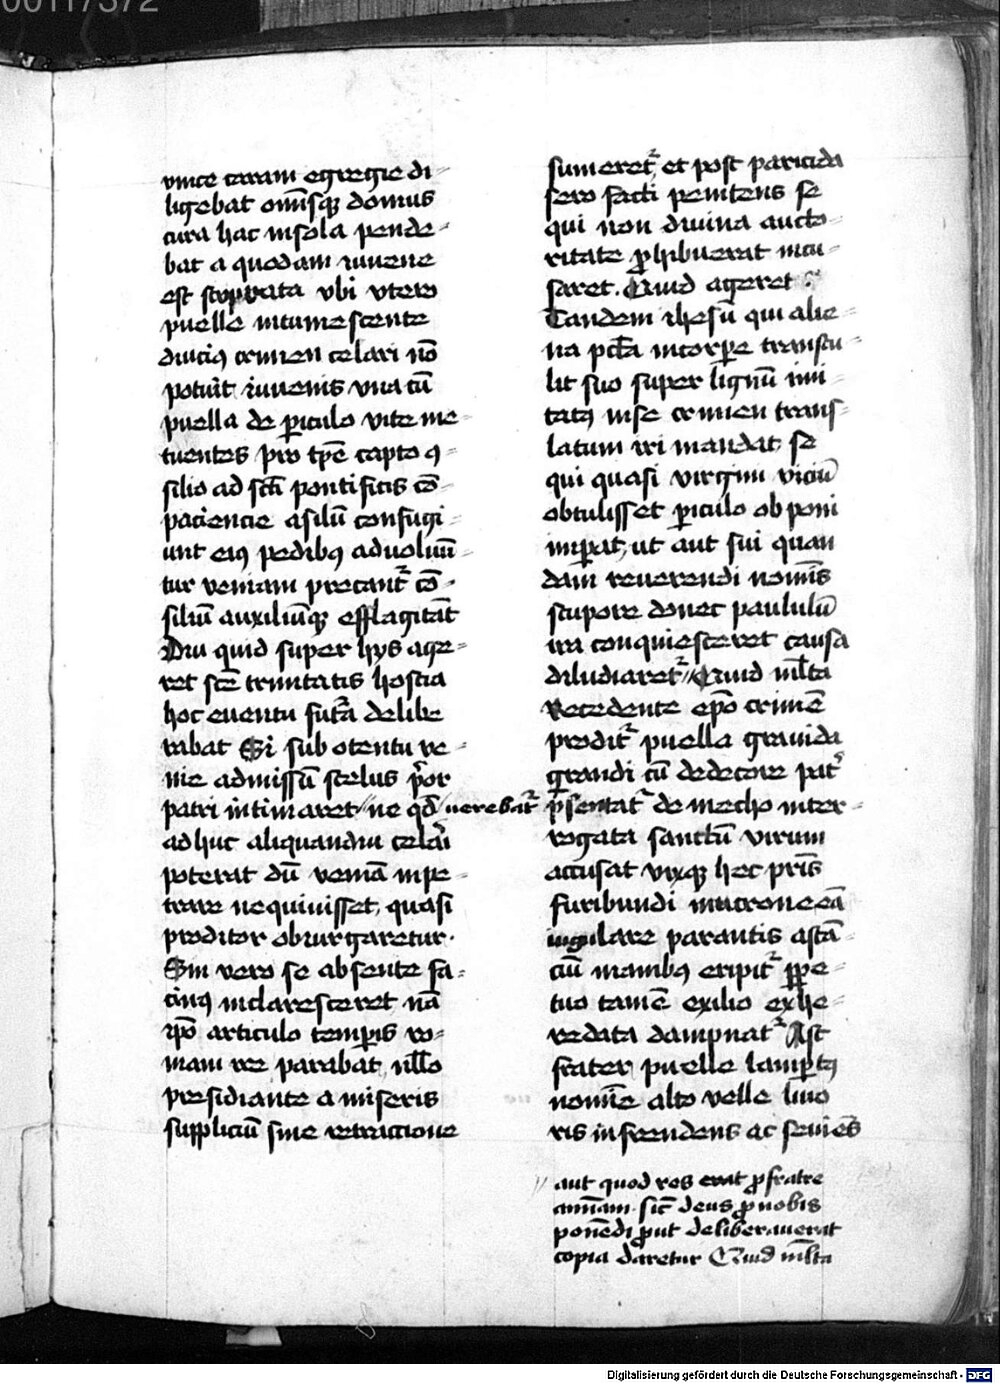 00117372
vnice caram egregie di-
ligebat omīsqꝫ domus
cura hac insola pende-
bat a quodam iuuene
est stuprata vbi vtero
puelle intumescente
diucius crimen celari nō
potuit iuuenis vna cū
puella de periculo vite me-
tuentes pro tp̄e capto ꝯ-
silio ad sc̄i pontificis cō-
paciencie asilū confugi-
unt eiꝰ pedibꝰ aduoluū-
tur veniam precant̄ cō-
siliū auxiliūqꝫ efflagitāt
Diu quid super hys age-
ret sc̄e trinitatis hostia
hoc euentu futr̄a delibe
rabat Si sub otentu ve-
nie admissū scelus p̄or
patri intimaret // ne qd̄ / uerebat̄
adhuc aliquandiu celari
poterat dū veniā inpe-
trare nequiuisset, quasi
proditor obiurgaretur.
Sin vero se absente fa-
cinꝰ inclaresceret nā
ip̄o articulo temp̄is ro-
mam ire parabat, nll̄o
presidiante a miseris
suppliciū sine retractione
sumeret̄, et post paricida
sero facti penitens se
qui non diuina aucto-
ritate ꝓhibuerat incu-
saret. Quid ageret
Tandem ihesū qui alie-
na pctā̄ incorpore transtu-
lit suo super lignū imi-
tatꝰ in se crimen trans-
latum iri mandat, se
qui quasi virgini viciū
obtulisset ꝑiculo obponi
imꝑat, ut aut sui quan
dam reuerendi nomīs
stupore donec paululū
ira conquiesceret causa
diludiaret̄ // Quid ml̄ta
Recedente ep̄o crimē
prodit̄ puella grauida
grandi cū dedecore patr̄
p̄sentat̄ de mecho inter-
rogata sanctū virum
accusat vixqꝫ hec pr̄is
furibundi mucrone eā
iugulare parantis astā-
ciū manibꝰ eripit̄ ꝑpe-
tuo tamē exilio exhe-
redata dampnat̄ Ast
frater puelle lamꝑtꝰ
nomīe alto velle liuo
ris infrendens ac seuiēs
// aut quod ros erat ꝓ fratre
animam sic̄ deus ꝓ nobis
ponēdi ꝓut deliberauerat
copia daretur Quid ml̄ta
Digitalisierung gefördert durch die Deutsche Forschungsgemeinschaft - DFG